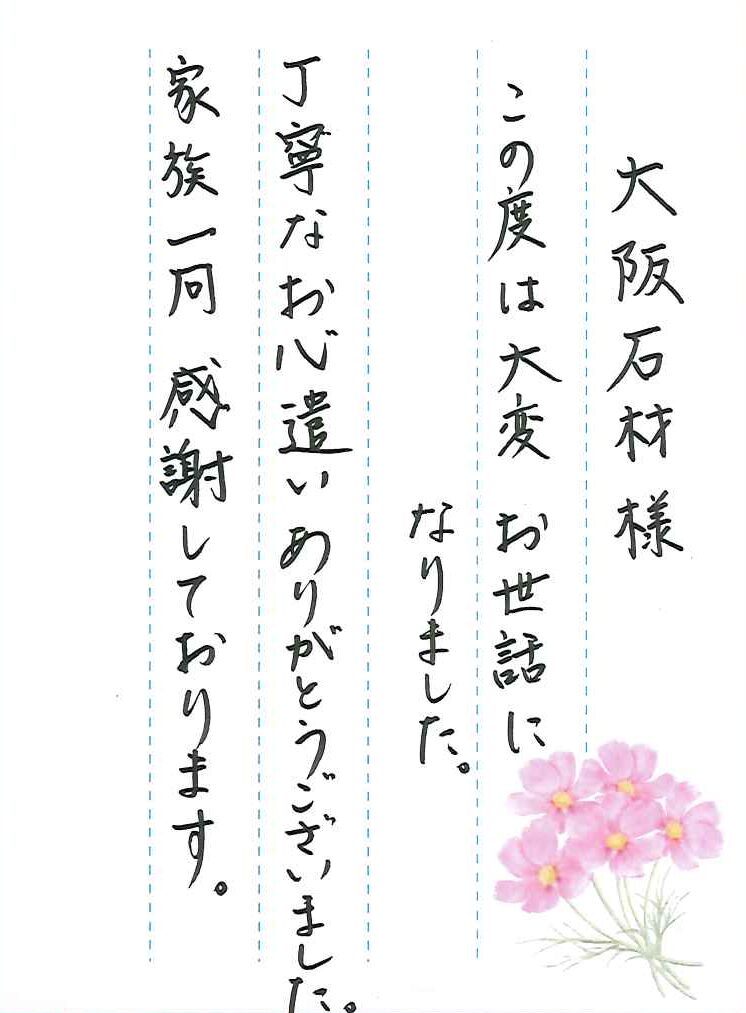 大阪石材様
この度は大変 お世話に
なりました。
丁寧なお心遣い ありがとうございました。
家族一同 感謝しております。